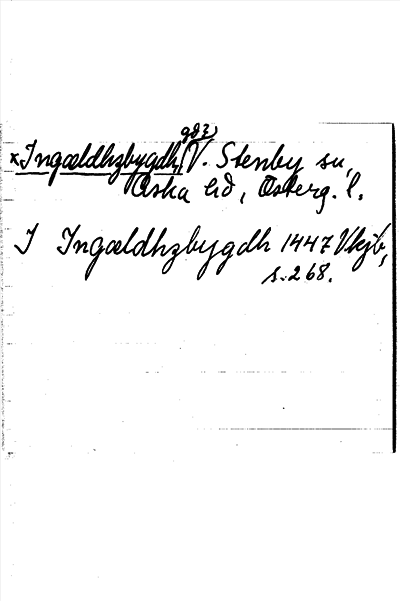 gd?)
*Ingældhzbygdh, V. Stenby sn,
Aska hd, Österg. l.
I Ingældhzbygdh 1447 Vkjb,
s. 268.